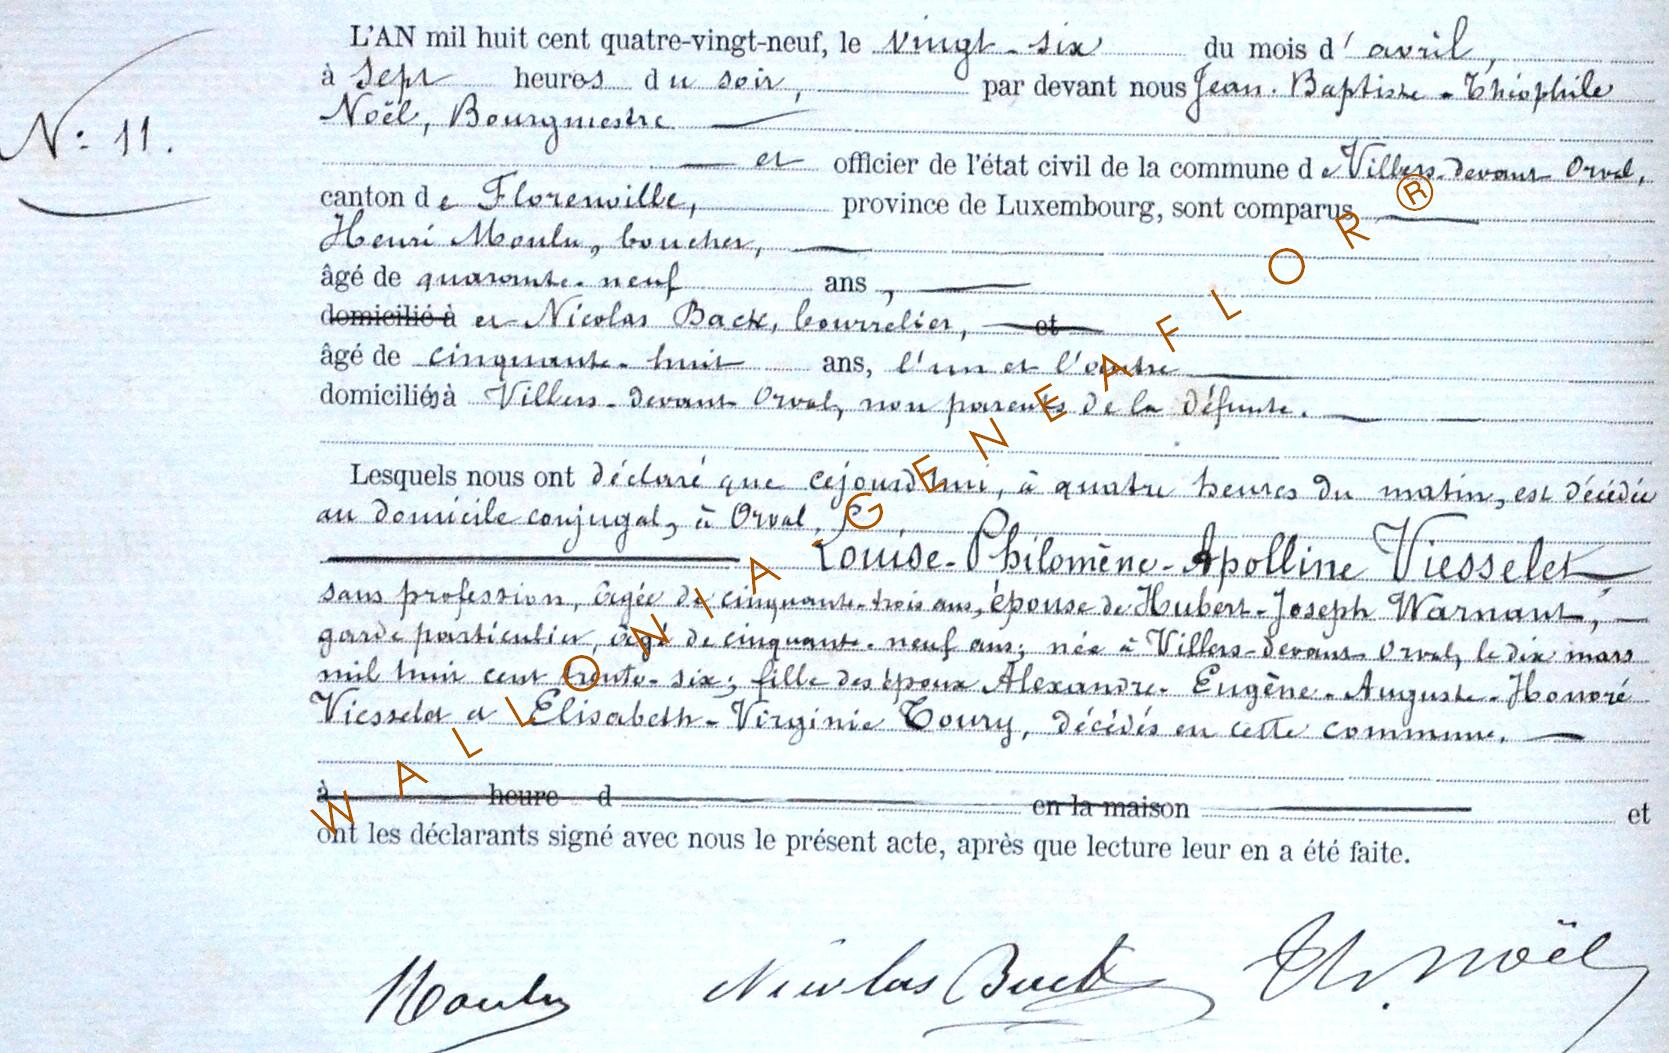 L'AN mil huit cent quatre-vingt-neuf, le vingt-six du mois d'avril,
à sept heures du soir, par devant nous Jean-Baptiste-Théophile
Noël, Bourgmestre
N° 11.
et officier de l'état civil de la commune de Villers-devant-Orval,
canton de Florenville, province de Luxembourg, sont comparus
Henri Moulu, boucher,
âgé de quarante-neuf ans,
domicilié à et Nicolas Back, bourrelier, et
âgé de cinquante-huit ans, l'un et l'autre
domiciliés à Villers-devant-Orval, non parents de la défunte.
Lesquels nous ont déclaré que cejourd'hui, à quatre heures du matin, est décédée
au domicile conjugal, à Orval,
Louise-Philomène-Apolline Viesselet
sans profession, âgée de cinquante-trois ans, épouse de Hubert-Joseph Warnant,
garde particulier, âgé de cinquante-neuf ans; née à Villers-devant-Orval, le dix mars
mil huit cent trente-six; fille des époux Alexandre-Eugène-Auguste-Honoré
Viesselet et Elisabeth-Virginie Toury, décédés en cette commune.
à heure d en la maison et
ont les déclarants signé avec nous le présent acte, après que lecture leur en a été faite.
Moulu Nicolas Back Th. Noël
WALLONIA GENEAFLOR ®